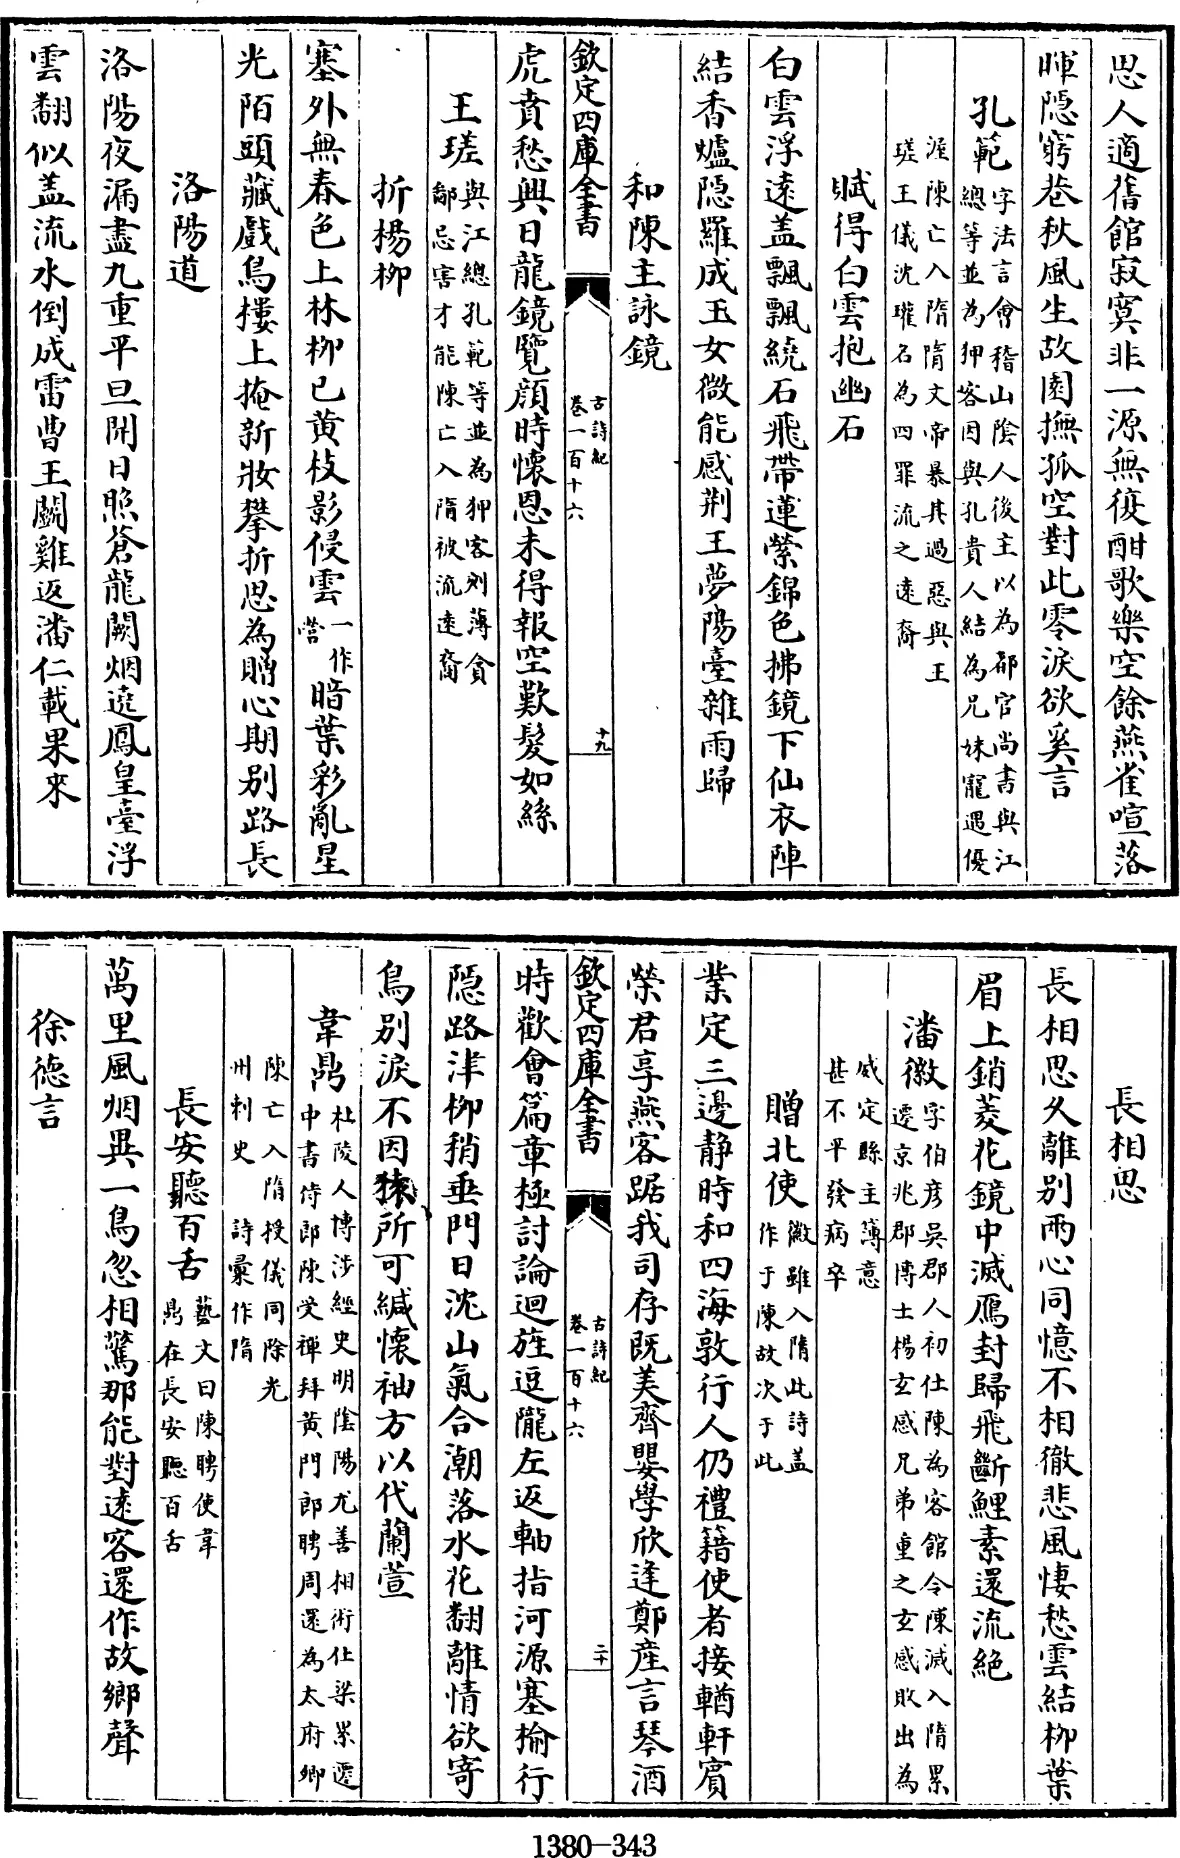 思人適舊館寂寞非一源無復酣歌樂空餘燕雀喧落
暉隠窮巷秋風生故園撫孤空對此零淚欲奚言
孔範字法言會稽山陰人後主以為都官尚書與江
總等並為狎客因與孔貴人結為兄妹寵遇優
渥陳亡入隋隋文帝暴其過惡與王
瑳王儀沈瓘名為四罪流之遠裔
賦得白雲抱幽石
白雲浮遠盖飄飄繞石飛帶蓮縈錦色拂鏡下仙衣陣
結香爐隠羅成玉女微能感荆王夢陽臺雜雨歸
和陳主詠鏡
欽定四庫全書
古詩紀
卷一百十六
十九
虎賁愁興日龍鏡覽顔時懷恩未得報空歎髮如絲
王瑳與江總孔範等並為狎客刻薄貪
鄙忌害才能陳亡入隋被流遠裔
折楊柳
塞外無春色上林柳已黄枝影侵雲一作
營暗葉彩亂星
光陌頭藏戲鳥樓上掩新妝攀折思為贈心期别路長
洛陽道
洛陽夜漏盡九重平旦開日照蒼龍闕烟遶鳳皇臺浮
雲翻似盖流水倒成雷曹王鬬雞返潘仁載果來
長相思
長相思久離别兩心同憶不相徹悲風悽愁雲結柳葉
眉上銷菱花鏡中滅鴈封歸飛斷鯉素還流絶
潘徽字伯彦吳郡人初仕陳為客館令陳滅入隋累
遷京兆郡博士楊玄感兄弟重之玄感敗出為
威定縣主薄意
甚不平發病卒
贈北使徽雖入隋此詩盖
作于陳故次于此
業定三邊静時和四海敦行人仍禮籍使者接輶軒賓
榮君享燕客踞我司存既美齊嬰學欣逢鄭産言琴酒
欽定四庫全書
古詩紀
卷一百十六
二十
時歡會篇章極討論迴旌逗隴左返軸指河源塞榆行
隠路津柳稍垂門日沈山氣合潮落水花翻離情欲寄
鳥别淚不因猿所可緘懷袖方以代蘭萱
韋鼎杜陵人博涉經史明陰陽尤善相術仕梁累遷
中書侍郎陳受禪拜黄門郎聘周還為太府卿
陳亡入隋授儀同除光
州刺史　詩彚作隋
長安聽百舌藝文曰陳聘使韋
鼎在長安聽百舌
萬里風烟異一鳥忽相驚那能對遠客還作故鄉聲
徐德言
1380—343